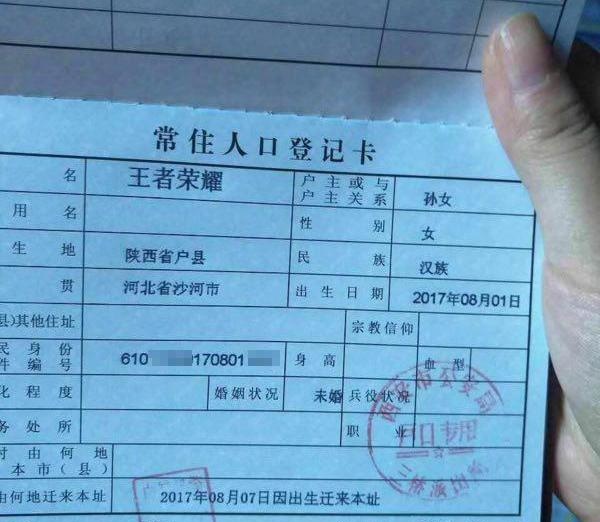 常住人口登记卡
名 王者荣耀 户主或与户主关系 孙女
用名 性别 女
生地 陕西省户县 民族 汉族
贯 河北省沙河市 出生日期 2017年08月01日
县)其他住址 宗教信仰
民身份件编号 610 170801 身高 血型
化程度 婚姻状况 未婚 兵役状况
务处所 职业
时由何地
本市(县)
由何地迁来本址 2017年08月07日因出生迁来本址
西安市公安局
户口专用
三桥派出所